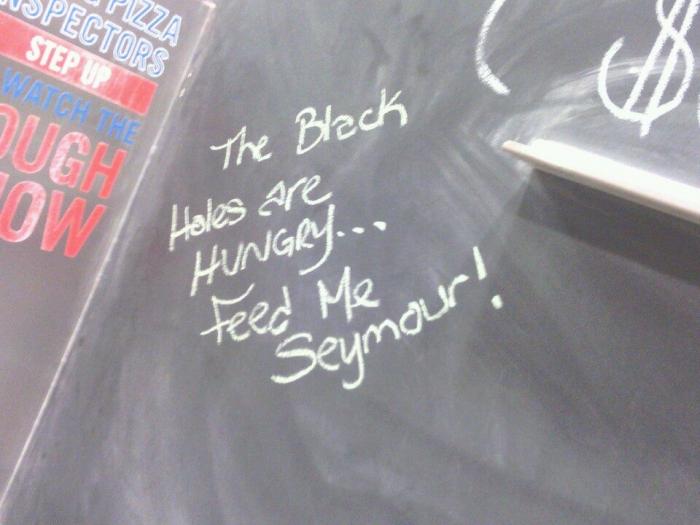 PIZZA
INSPECTORS
STEP UP
WATCH THE
The Black
Holes are
HUNGRY...
Feed Me
Seymour!
$